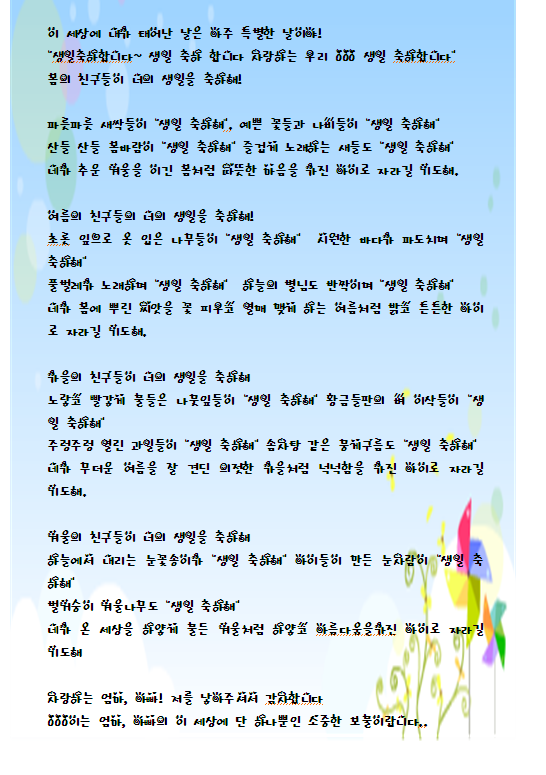 이 세상에 네가 태어난 날은 아주 특별한 날이야!
"생일축하합니다~ 생일 축하 합니다 사랑하는 우리 ㅇㅇㅇ 생일 축하합니다"
봄의 친구들이 너의 생일을 축하해!
파릇파릇 새싹들이 "생일 축하해", 예쁜 꽃들과 나비들이 "생일 축하해"
산들 산들 봄바람이 "생일 축하해" 즐겁게 노래하는 새들도 "생일 축하해"
네가 추운 겨울을 이긴 봄처럼 따뜻한 마음을 가진 아이로 자라길 기도해.
여름의 친구들의 너의 생일을 축하해!
초록 잎으로 옷 입은 나무들이 "생일 축하해" 시원한 바다가 파도치며 "생일
축하해"
풀벌레가 노래하며 "생일 축하해" 하늘의 별님도 반짝이며 "생일 축하해"
네가 봄에 뿌린 씨앗을 꽃 피우고 열매 맺게 하는 여름처럼 밝고 튼튼한 아이
로 자라길 기도해.
가을의 친구들이 너의 생일을 축하해
노랗고 빨갛게 물들은 나뭇잎들이 "생일 축하해" 황금들판의 벼 이삭들이 "생
일 축하해"
주렁주렁 열린 과일들이 "생일 축하해" 솜사탕 같은 뭉게구름도 "생일 축하해"
네가 무더운 여름을 잘 견딘 의젓한 가을처럼 넉넉함을 가진 아이로 자라길
기도해.
겨울의 친구들이 너의 생일을 축하해
하늘에서 내리는 눈꽃송이가 "생일 축하해" 아이들이 만든 눈사람이 "생일 축
하해"
벌거숭이 겨울나무도 "생일 축하해"
네가 온 세상을 하얗게 물든 겨울처럼 하얗고 아름다움을가진 아이로 자라길
기도해
사랑하는 엄마, 아빠! 저를 낳아주셔서 감사합니다
ㅇㅇㅇ이는 엄마, 아빠의 이 세상에 단 하나뿐인 소중한 보물이랍니다..